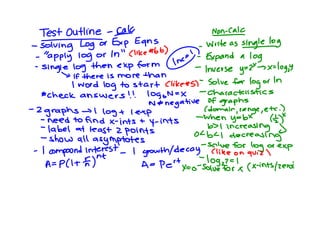 Test Outline - Calc
- Solving Log or Exp Eqns
- "apply log or ln" (like #6b)
- single log then exp form
↳ if there is more than
1 word log to start (like #5)
*check answers!! log_b N = x
N ≠ negative
- 2 graphs → 1 log + 1 exp
- need to find x-ints + y-ints
- label at least 2 points
- show all asymptotes
- 1 compound interest - 1 growth/decay
A = P(1 + r/n)^nt A = Pe^rt
Inc #1
Non-Calc
- Write as single log
- Expand a log
- Inverse y=2^x → x=log_2 y
- Solve for log or ln
- Characteristics
of graphs
(domain, range, etc.)
- When y=b^x (½)^x
b>1 increasing
0<b<1 decreasing
- Solve for log or exp
(like on quiz)
- log_7 7=1
y=0 - Solve for x (x-ints/zeros)